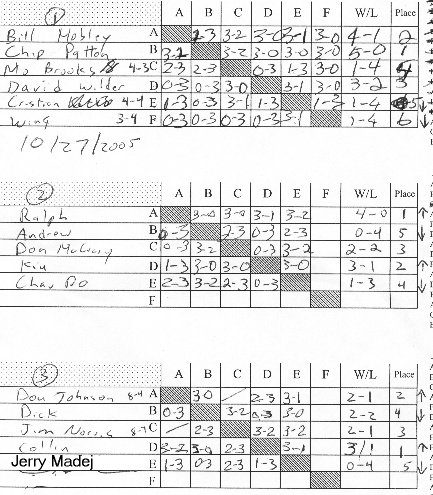 1 A B C D E F W/L Place
Bill Mobley A 2-3 3-2 3-0 3-1 3-0 4-1 2
Chip Patton B 3-2 3-2 3-0 3-0 3-0 5-0 1
Mo Brooks 4-3 C 2-3 2-3 0-3 1-3 3-0 1-4 4
David Wilder D 0-3 0-3 3-0 3-1 3-0 3-2 3
Cristian 4-4 E 1-3 0-3 3-1 1-3 1-3 1-4 5
Wing 3-4 F 0-3 0-3 0-3 0-3 3-1 1-4 6
10/27/2005
2 A B C D E F W/L Place
Ralph A 3-0 3-0 3-1 3-2 4-0 1
Andrew B 0-3 2-3 0-3 2-3 0-4 5
Don C 0-3 3-2 0-3 3-2 2-2 3
D 1-3 3-0 3-0 3-0 3-1 2
E 2-3 3-2 2-3 0-3 1-3 4
F
3 A B C D E F W/L Place
Don Johnson 8-4 A 3-0 2-3 3-1 2-1 2
Dick B 0-3 3-2 0-3 3-0 2-2 4
Jim Norris C 2-3 3-2 3-2 2-1 3
Collin D 3-2 3-0 2-3 3-1 3/1 1
Jerry Madej E 1-3 0-3 2-3 1-3 0-4 5
F